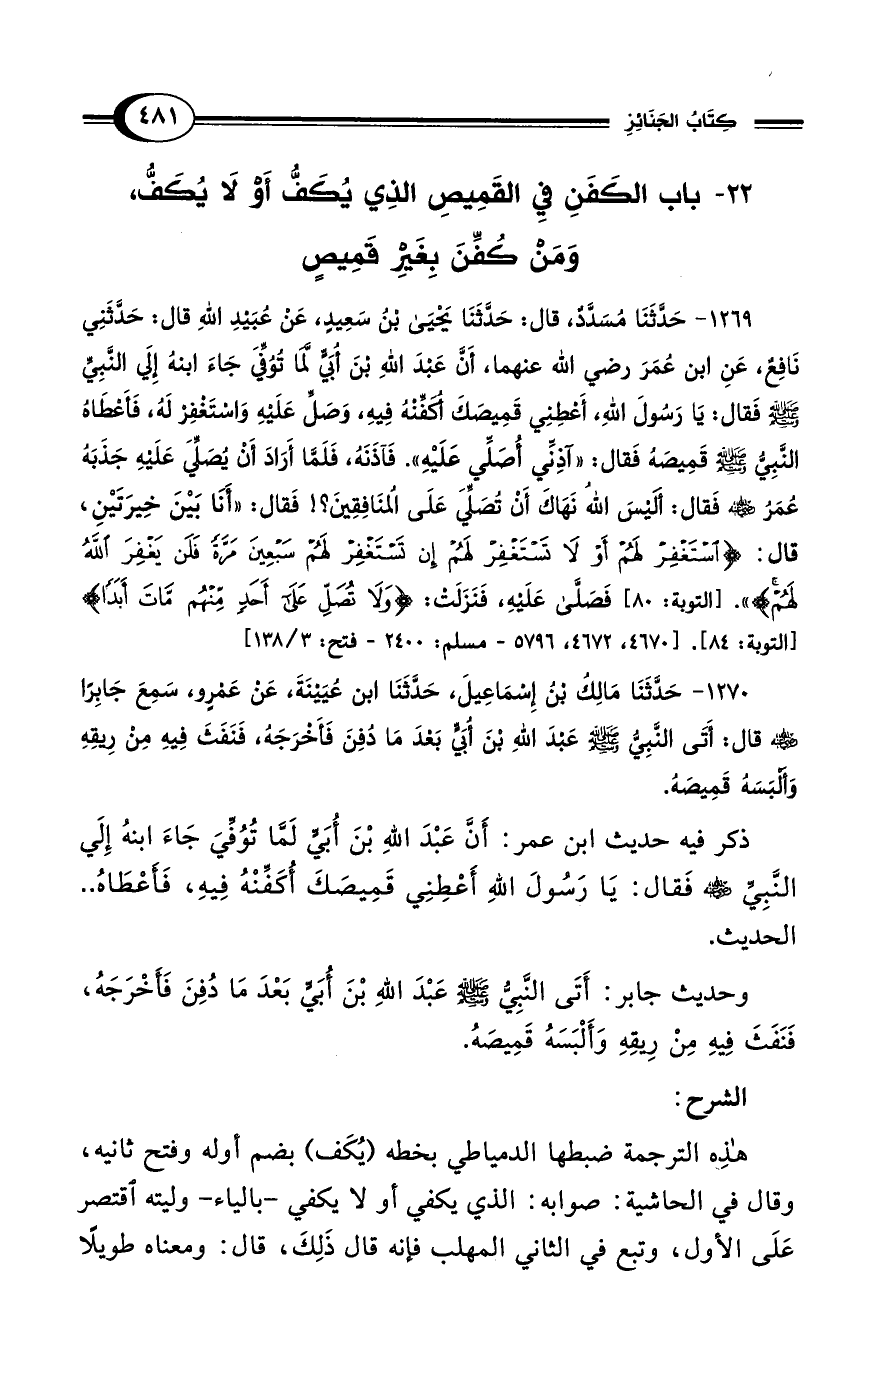 كِتَابُ الجَنَائِزِ
٤٨١
٢٢- باب الكَفَنِ فِي القَمِيصِ الذِي يُكَفُّ أَوْ لَا يُكَفُّ،
وَمَنْ كُفِّنَ بِغَيْرِ قَمِيصٍ
١٢٦٩- حَدَّثَنَا مُسَدَّدٌ، قال: حَدَّثَنَا يَحْيَىٰ بْنُ سَعِيدٍ، عَنْ عُبَيْدِ اللهِ قال: حَدَّثَنِي
نَافِعٌ، عَنِ ابن عُمَرَ رضي الله عنهما، أَنَّ عَبْدَ اللهِ بْنَ أُبَيٍّ لَمَّا تُوُفِّيَ جَاءَ ابنهُ إِلَي النَّبِيِّ
ﷺ فَقال: يَا رَسُولَ اللهِ، أَعْطِنِي قَمِيصَكَ أُكَفِّنْهُ فِيهِ، وَصَلِّ عَلَيْهِ وَاسْتَغْفِرْ لَهُ، فَأَعْطَاهُ
النَّبِيُّ ﷺ قَمِيصَهُ فَقال: «آذِنِّي أُصَلِّي عَلَيْهِ». فَآذَنَهُ، فَلَمَّا أَرَادَ أَنْ يُصَلِّيَ عَلَيْهِ جَذَبَهُ
عُمَرُ ﷺ فَقال: أَلَيْسَ اللهُ نَهَاكَ أَنْ تُصَلِّيَ عَلَى المُنَافِقِينَ؟! فَقال: «أَنَا بَيْنَ خِيرَتَيْنِ،
قال: ﴿ٱسْتَغْفِرْ لَهُمْ أَوْ لَا تَسْتَغْفِرْ لَهُمْ إِن تَسْتَغْفِرْ لَهُمْ سَبْعِينَ مَرَّةً فَلَن يَغْفِرَ ٱللَّهُ
لَهُمْۚ﴾». [التوبة: ٨٠] فَصَلَّىٰ عَلَيْهِ، فَنَزَلَتْ: ﴿وَلَا تُصَلِّ عَلَىٰٓ أَحَدٍ مِّنْهُم مَّاتَ أَبَدًا﴾
[التوبة: ٨٤]. [٤٦٧٠، ٤٦٧٢، ٥٧٩٦ - مسلم: ٢٤٠٠ - فتح: ٣/١٣٨]
١٢٧٠- حَدَّثَنَا مَالِكُ بْنُ إِسْمَاعِيلَ، حَدَّثَنَا ابن عُيَيْنَةَ، عَنْ عَمْرٍو، سَمِعَ جَابِرًا
ﷺ قال: أَتَى النَّبِيُّ ﷺ عَبْدَ اللهِ بْنَ أُبَيٍّ بَعْدَ مَا دُفِنَ فَأَخْرَجَهُ، فَنَفَثَ فِيهِ مِنْ رِيقِهِ
وَأَلْبَسَهُ قَمِيصَهُ.
ذكر فيه حديث ابن عمر: أَنَّ عَبْدَ اللهِ بْنَ أُبَيٍّ لَمَّا تُوُفِّيَ جَاءَ ابنهُ إِلَي
النَّبِيِّ ﷺ فَقال: يَا رَسُولَ اللهِ أَعْطِنِي قَمِيصَكَ أُكَفِّنْهُ فِيهِ، فَأَعْطَاهُ..
الحديث.
وحديث جابر: أَتَى النَّبِيُّ ﷺ عَبْدَ اللهِ بْنَ أُبَيٍّ بَعْدَ مَا دُفِنَ فَأَخْرَجَهُ،
فَنَفَثَ فِيهِ مِنْ رِيقِهِ وَأَلْبَسَهُ قَمِيصَهُ.
الشرح:
هٰذِه الترجمة ضبطها الدمياطي بخطه (يُكَف) بضم أوله وفتح ثانيه،
وقال في الحاشية: صوابه: الذي يكفي أو لا يكفي -بالياء- وليته ٱقتصر
عَلَى الأول، وتبع في الثاني المهلب فإنه قال ذَلِكَ، قال: ومعناه طويلًا